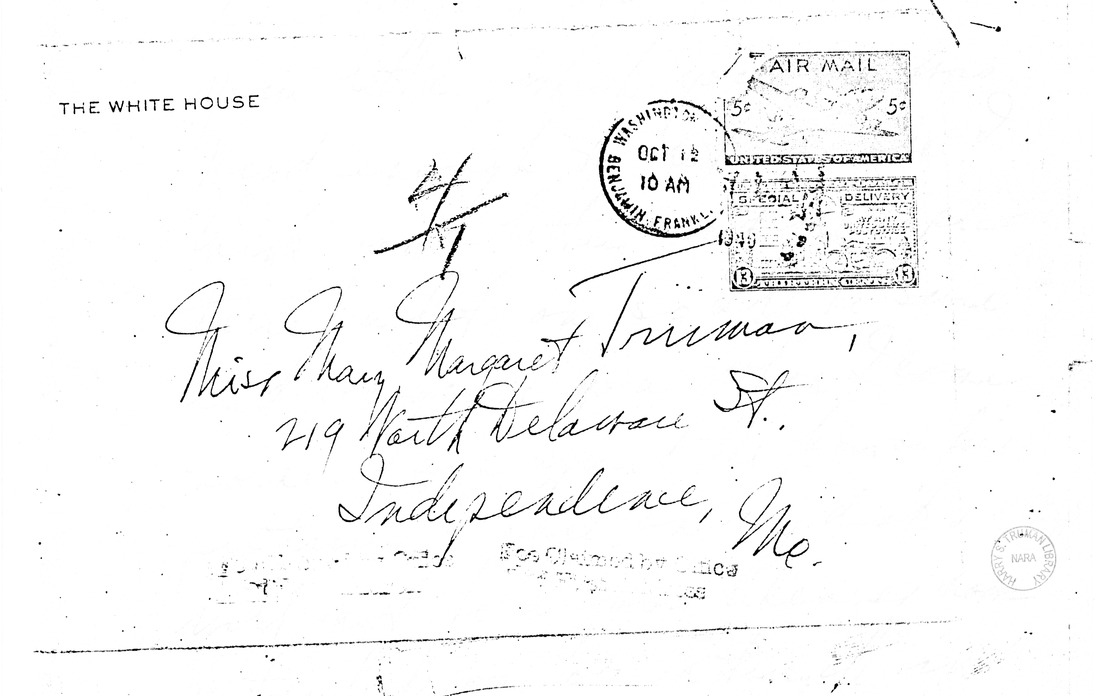 THE WHITE HOUSE
AIR MAIL
5¢ 5¢
UNITED STATES OF AMERICA
WASHINGTON
OCT 12
10 AM
BENJAMIN FRANKL
1946
SPECIAL DELIVERY
13 13
4/1
Miss Mary Margaret Truman,
219 North Delaware St.
Independence, Mo.
Fee Claimed by Office
HARRY S. TRUMAN LIBRARY
NARA